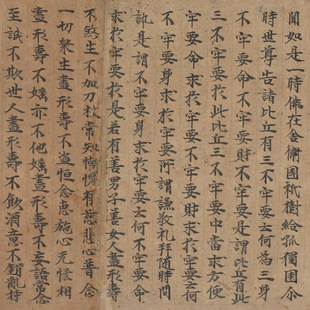 聞如是一時佛在舍衛國祇樹給孤獨園尒
時世尊告諸比丘有三不牢要云何為三身
不牢要命不牢要財不牢要是謂比丘有此
三不牢要於此比丘三不牢要中當求方便
不牢要命求於牢要不牢要財求於牢要云何
不牢要身求於牢要所謂謙敬礼拜隨時問
訊是謂不牢要身求於牢要云何不牢要命
求於牢要於是若有善男子善女人盡形壽
不煞生不加刀杖常知慚愧有慈悲心普念
一切衆生盡形壽不盜恒念惠施心无恡想
盡形壽不婬亦不他婬盡形壽不妄語常念
至誠不欺世人盡形壽不飲酒意不錯亂持